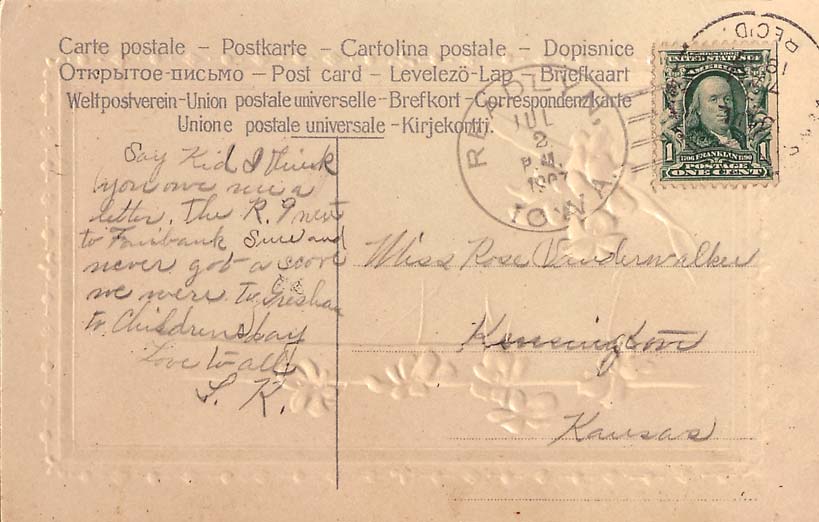 Carte postale – Postkarte – Cartolina postale – Dopisnice
Открытое-письмо – Post card – Levelezö-Lap – Briefkaart
Weltpostverein-Union postale universelle-Brefkort-Correspondenzkarte
Unione postale universale - Kirjekontti.
Say Kid I think
you owe me a
letter. The R. 9 went
to Fairbank Sun and
never got a score
we were to Gresham
to Childrensday
Love to all
L. K.
READLYN,
JUL
2
P.M.
1907
IOWA.
REC'D.
UNITED STATES OF
AMERICA
1 1706 FRANKLIN 1790 1
POSTAGE
ONE CENT
Miss Rose Vanderwalker
Kensington
Kansas